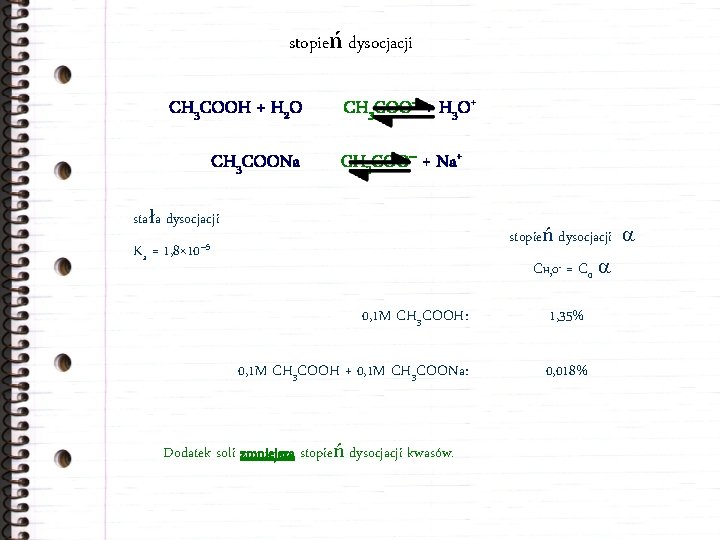 stopień dysocjacji
CH₃COOH + H₂O ⇌ CH₃COO⁻ + H₃O⁺
CH₃COONa ⇌ CH₃COO⁻ + Na⁺
stała dysocjacji
Kₐ = 1,8×10⁻⁵
stopień dysocjacji α
C_H₃O⁺ = C₀ α
0,1M CH₃COOH: 1,35%
0,1M CH₃COOH + 0,1M CH₃COONa: 0,018%
Dodatek soli zmniejsza stopień dysocjacji kwasów.